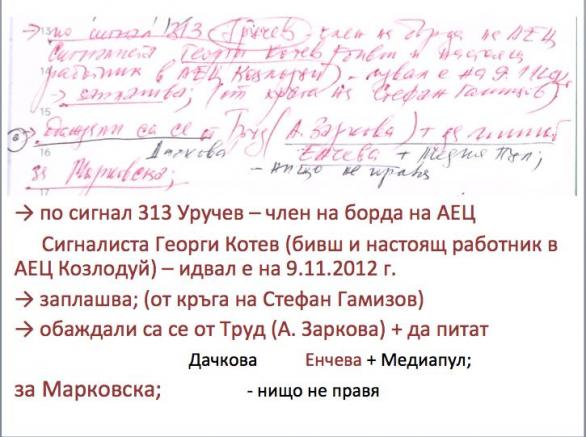 → по сигнал 313 Уручев – член на борда на АЕЦ
Сигналиста Георги Котев (бивш и настоящ
работник в АЕЦ Козлодуй) – идвал е на 9.11.2012
15
→ заплашва; (от кръга на Стефан Гамизов)
6
→ обаждали са се от Труд (А. Заркова) + да питат
16
Дачкова Енчева + Медиапул;
за Марковска; - нищо не правя
17
→ по сигнал 313 Уручев – член на борда на АЕЦ
Сигналиста Георги Котев (бивш и настоящ работник в
АЕЦ Козлодуй) – идвал е на 9.11.2012 г.
→ заплашва; (от кръга на Стефан Гамизов)
→ обаждали са се от Труд (А. Заркова) + да питат
Дачкова Енчева + Медиапул;
за Марковска; - нищо не правя